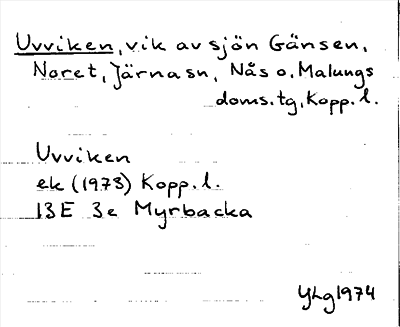 Uvviken, vik av sjön Gänsen,
Noret, Järnasn, Nås o. Malungs
doms.tg, Kopp. l.
Uvviken
ek (1973) Kopp. l.
13E 3e Myrbacka
YLg 1974